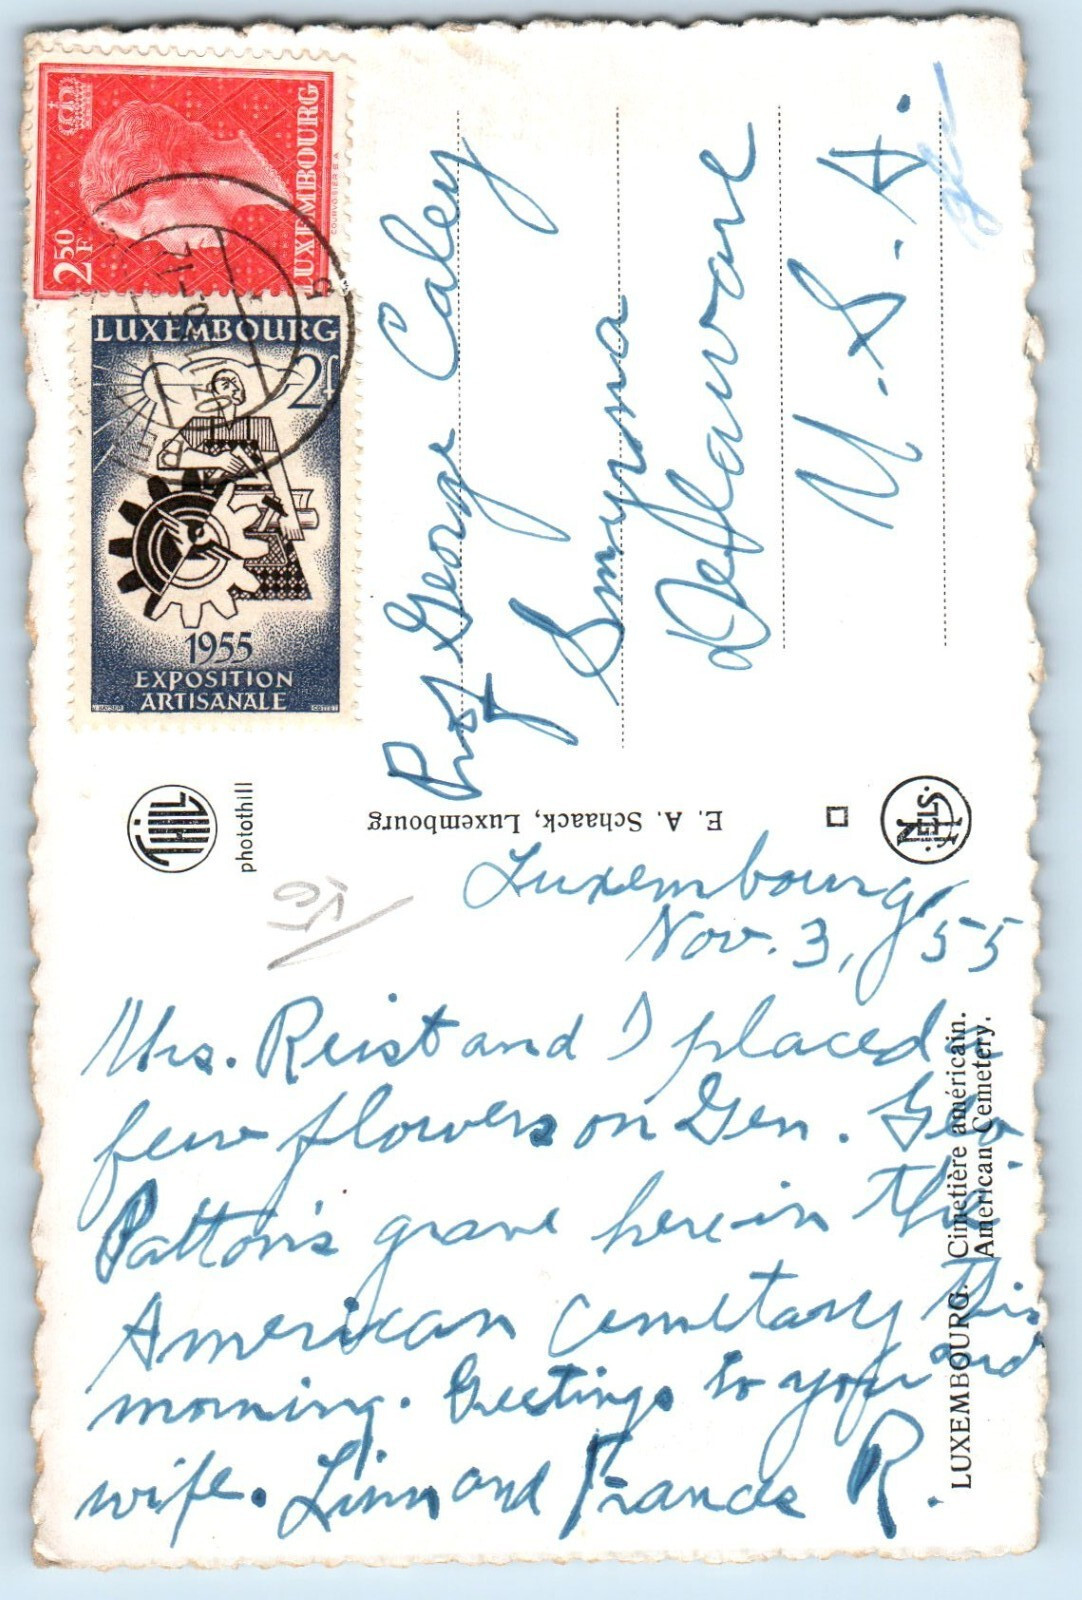 LUXEMBOURG
2.50 F
COURVOISIER S.A.
LUXEMBOURG
2f
1955
EXPOSITION
ARTISANALE
Prof George Caley
Smyrna
Dellaware
U. S. A.
THILL
photothill
E. A. Schaack, Luxembourg
LUXEMBOURG. Cimetière américain.
American Cemetery.
Luxembourg,
Nov. 3, 55
Mrs. Reist and I placed a
few flowers on Gen. Geo
Patton's grave here in the
American cemetary this
morning. Greetings to you and
wife. Linn and Francis R.